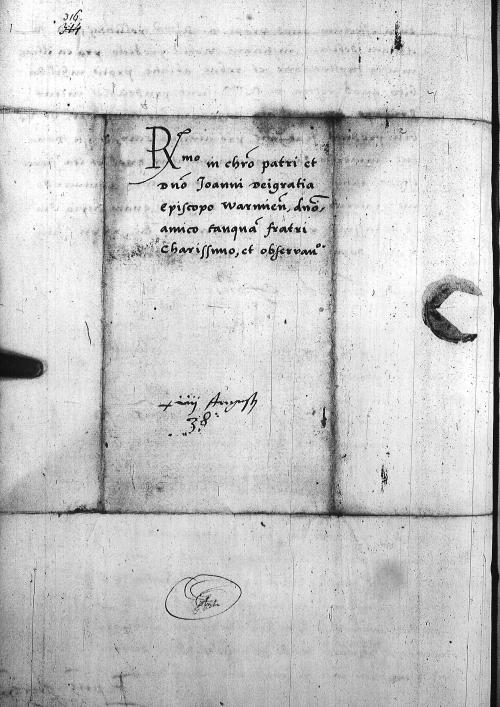 316
344
Rmo in chro patri et
Dno Joanni Dei gratia
Episcopo Warmien, dno,
amico tanqua fratri
Charissimo, et observan°
+iiij Augusti
38